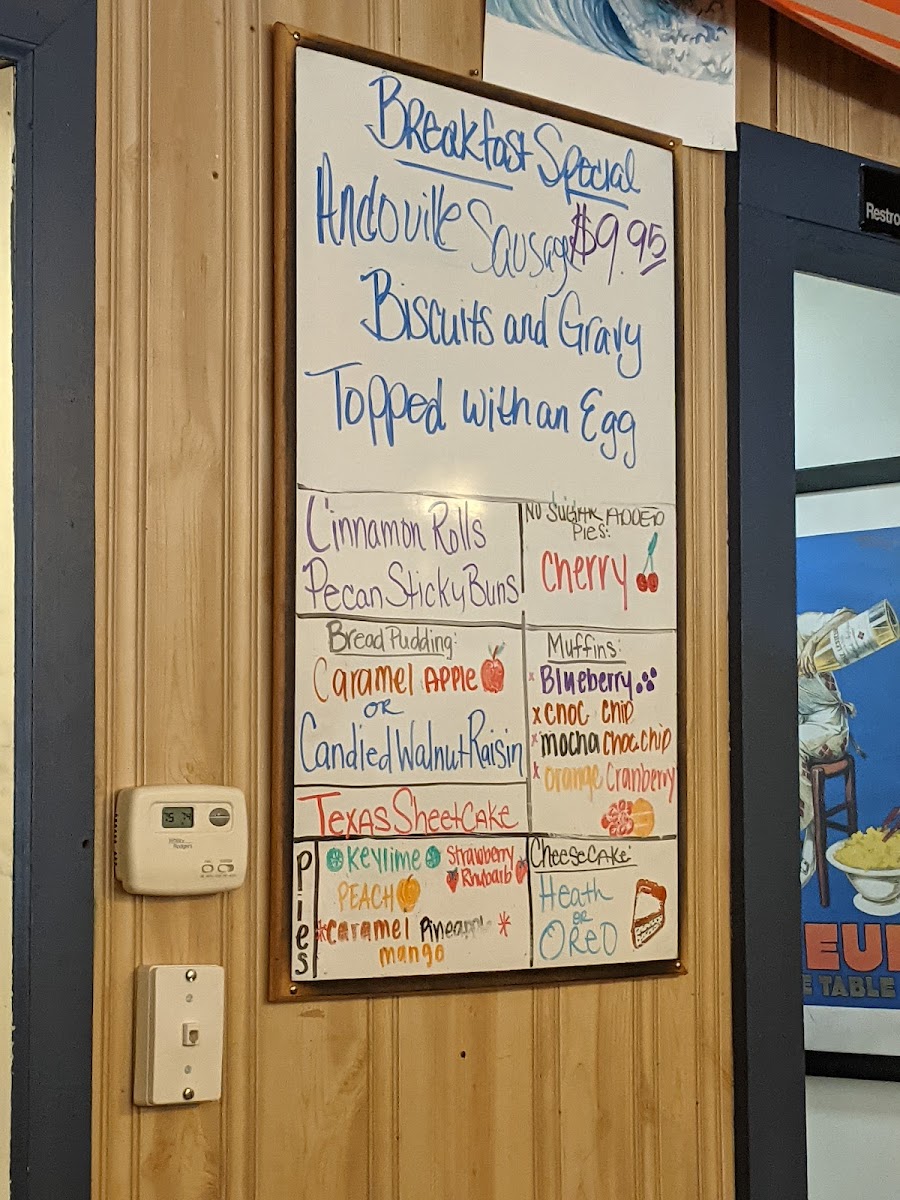 Breakfast Special
Andouille Sausage $9.95
Biscuits and Gravy
Topped with an Egg
Cinnamon Rolls
Pecan Sticky Buns
NO SUGAR ADDED
Pies:
Cherry
Bread Pudding:
Caramel APPLE
OR
Candied Walnut Raisin
Muffins:
x Blueberry
x choc chip
x mocha choc chip
x orange Cranberry
Texas Sheet Cake
Pies
Keylime
Strawberry
Rhubarb
PEACH
*caramel Pineapple *
mango
Cheesecake:
Heath
OR
OREO
75 74
Restro
EU
E TABLE